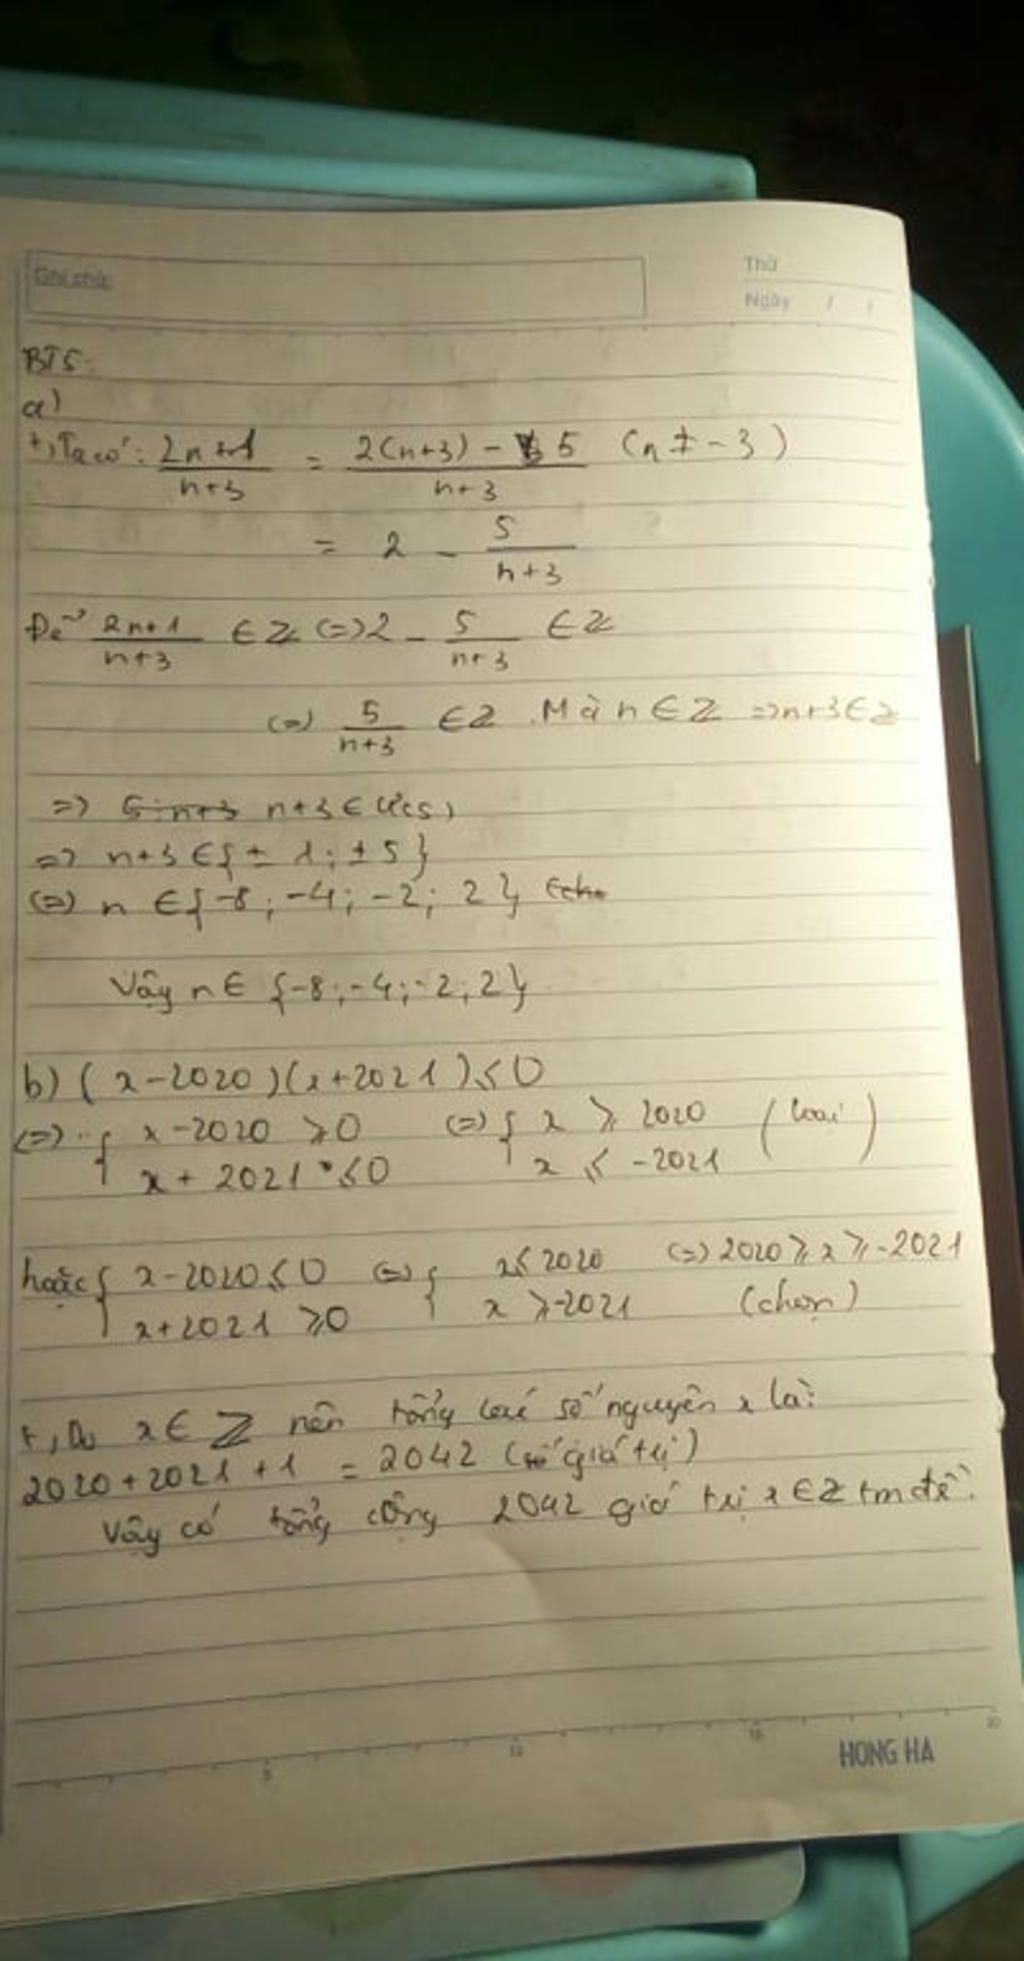 Ghi chú:
Thứ
Ngày / /
BT5:
a)
+, Ta có: (2n+1)/(n+3) = (2(n+3) - 5)/(n+3) (n ≠ -3)
= 2 - 5/(n+3)
Để (2n+1)/(n+3) ∈ Z (=) 2 - 5/(n+3) ∈ Z
(=) 5/(n+3) ∈ Z. Mà n ∈ Z => n+3 ∈ Z
=> n+3 ∈ Ư(5)
=> n+3 ∈ {± 1; ± 5}
(=) n ∈ {-8; -4; -2; 2}
Vậy n ∈ {-8; -4; -2; 2}
b) (x-2020)(x+2021) ≤ 0
(=) { x-2020 ≥ 0 (=) { x ≥ 2020 (loại)
x + 2021 ≤ 0 x ≤ -2021
hoặc { x-2020 ≤ 0 (=) { x ≤ 2020 (=) 2020 ≥ x ≥ -2021
x+2021 ≥ 0 x ≥ -2021 (chọn)
+, Do x ∈ Z nên tổng số nguyên x là:
2020 + 2021 + 1 = 2042 (giá trị)
Vậy có tổng cộng 2042 giá trị x ∈ Z tm đề.
5 10 15 20
HONG HA